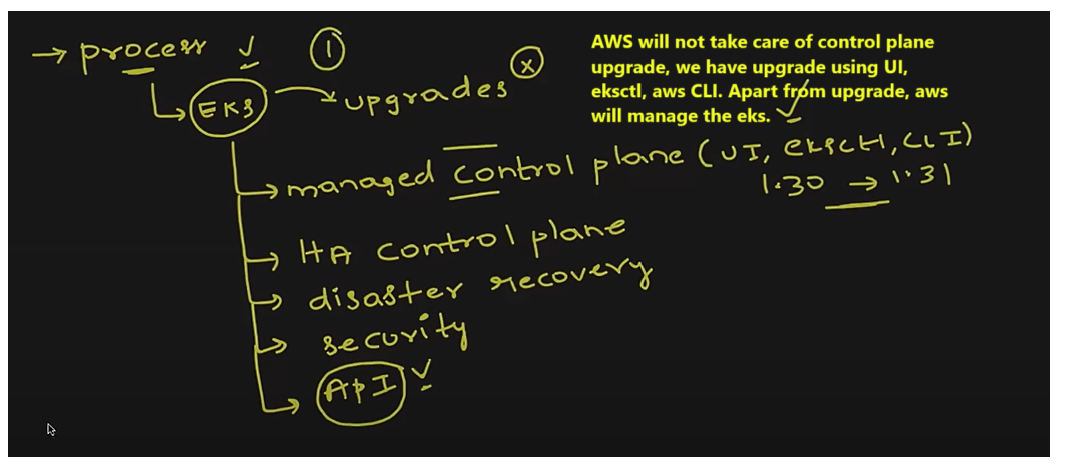 → process ✓ ①
EKS → upgrades ⓧ
AWS will not take care of control plane
upgrade, we have upgrade using UI,
eksctl, aws CLI. Apart from upgrade, aws
will manage the eks.
→ managed control plane (UI, eksctl, CLI)
1.30 → 1.31
→ HA control plane
→ disaster recovery
→ security
→ API ✓